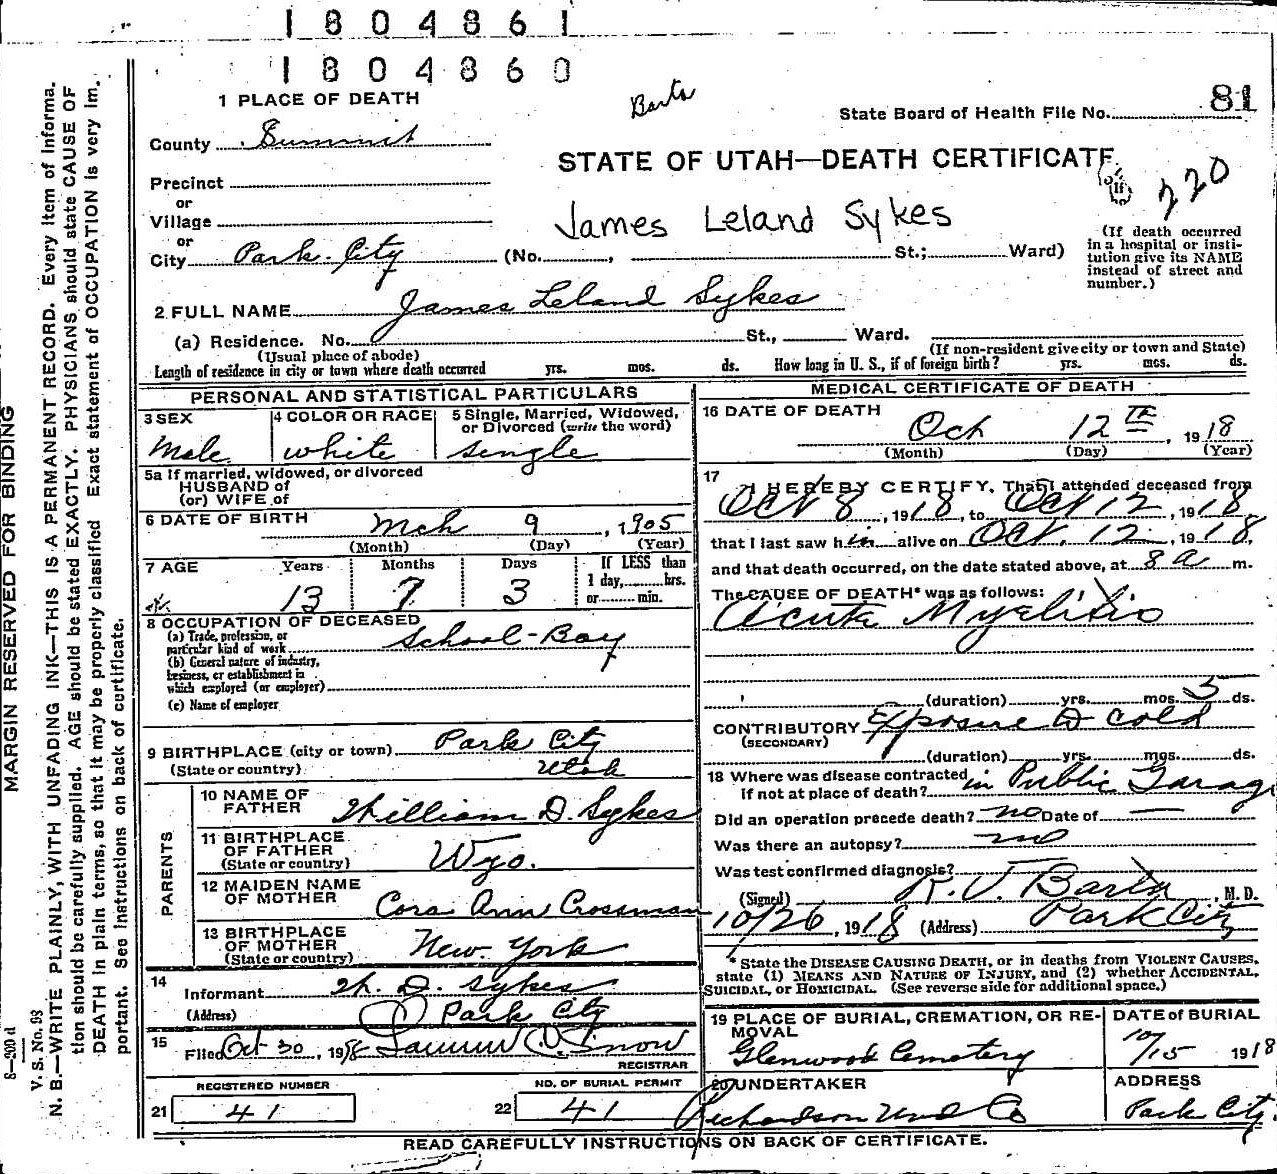 1804861
1804860
1 PLACE OF DEATH
Barta
State Board of Health File No. 81
County Summit
STATE OF UTAH—DEATH CERTIFICATE
220
Precinct
or
Village
James Leland Sykes
or
City Park City (No. , St.; Ward)
(If death occurred
in a hospital or insti-
tution give its NAME
instead of street and
number.)
2 FULL NAME James Leland Sykes
(a) Residence. No. St., Ward.
(Usual place of abode) (If non-resident give city or town and State)
Length of residence in city or town where death occurred yrs. mos. ds. How long in U. S., if of foreign birth? yrs. mos. ds.
PERSONAL AND STATISTICAL PARTICULARS
3 SEX 4 COLOR OR RACE 5 Single, Married, Widowed,
or Divorced (write the word)
Male white single
5a If married, widowed, or divorced
HUSBAND of
(or) WIFE of
6 DATE OF BIRTH Mch 9, 1905
(Month) (Day) (Year)
7 AGE Years Months Days If LESS than
1 day, hrs.
or min.
13 7 3
8 OCCUPATION OF DECEASED
(a) Trade, profession, or
particular kind of work School-Boy
(b) General nature of industry,
business, or establishment in
which employed (or employer)
(c) Name of employer
9 BIRTHPLACE (city or town) Park City
(State or country) Utah
PARENTS
10 NAME OF
FATHER William D. Sykes
11 BIRTHPLACE
OF FATHER
(State or country) Wyo.
12 MAIDEN NAME
OF MOTHER Cora Ann Crossman
13 BIRTHPLACE
OF MOTHER
(State or country) New York
14
Informant W. D. Sykes
(Address) Park City
15 Filed Oct 30, 1918 Snow
REGISTRAR
REGISTERED NUMBER NO. OF BURIAL PERMIT
21 41 22 41
MEDICAL CERTIFICATE OF DEATH
16 DATE OF DEATH
Oct 12TH, 1918
(Month) (Day) (Year)
17
I HEREBY CERTIFY, That I attended deceased from
Oct 8, 1918, to Oct 12, 1918
that I last saw him alive on Oct. 12, 1918,
and that death occurred, on the date stated above, at 8 a m.
The CAUSE OF DEATH* was as follows:
Acute Myelitis
(duration) yrs. mos. 5 ds.
CONTRIBUTORY Exposure to cold
(SECONDARY)
(duration) yrs. mos. ds.
18 Where was disease contracted
if not at place of death? in Public Garage
Did an operation precede death? no Date of —
Was there an autopsy? no
Was test confirmed diagnosis?
(Signed) R. J. Barta, M. D.
10/26, 1918 (Address) Park City
* State the DISEASE CAUSING DEATH, or in deaths from VIOLENT CAUSES,
state (1) MEANS AND NATURE OF INJURY, and (2) whether ACCIDENTAL,
SUICIDAL, or HOMICIDAL. (See reverse side for additional space.)
19 PLACE OF BURIAL, CREMATION, OR RE-
MOVAL
Glenwood Cemetery
DATE of BURIAL
10/15 1918
20 UNDERTAKER
Richardson Und Co
ADDRESS
Park City
READ CAREFULLY INSTRUCTIONS ON BACK OF CERTIFICATE.
MARGIN RESERVED FOR BINDING
8—200 d
V. S. No. 93
N. B.—WRITE PLAINLY, WITH UNFADING INK—THIS IS A PERMANENT RECORD. Every item of Informa-
tion should be carefully supplied. AGE should be stated EXACTLY. PHYSICIANS should state CAUSE OF
DEATH in plain terms, so that it may be properly classified. Exact statement of OCCUPATION is very im-
portant. See instructions on back of certificate.